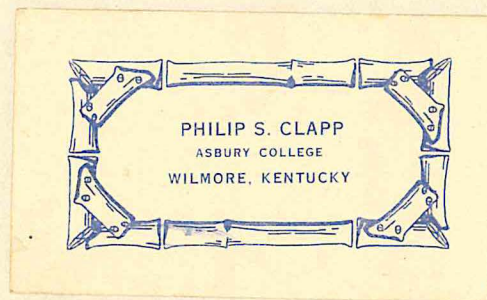 PHILIP S. CLAPP
ASBURY COLLEGE
WILMORE, KENTUCKY